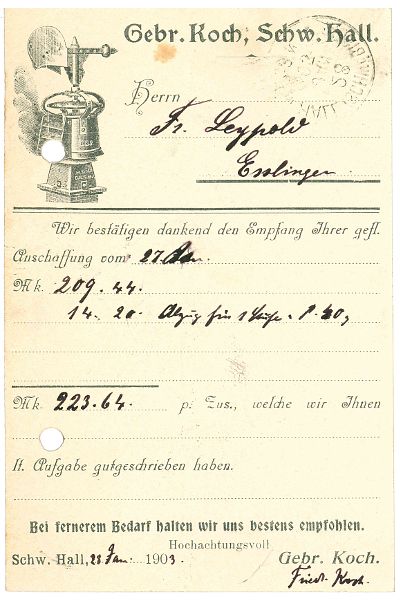 Gebr. Koch, Schw. Hall.
Herrn
Fr. Leypold
Esslingen
Wir bestätigen dankend den Empfang Ihrer gefl.
Anschaffung vom 27
Mk. 209.44.
14. 20
Mk. 223.64. p. Zus., welche wir Ihnen
lt. Aufgabe gutgeschrieben haben.
Bei fernerem Bedarf halten wir uns bestens empfohlen.
Hochachtungsvoll
Schw. Hall, 28 Jan. 1903.
Gebr. Koch.
Friedr. Koch.